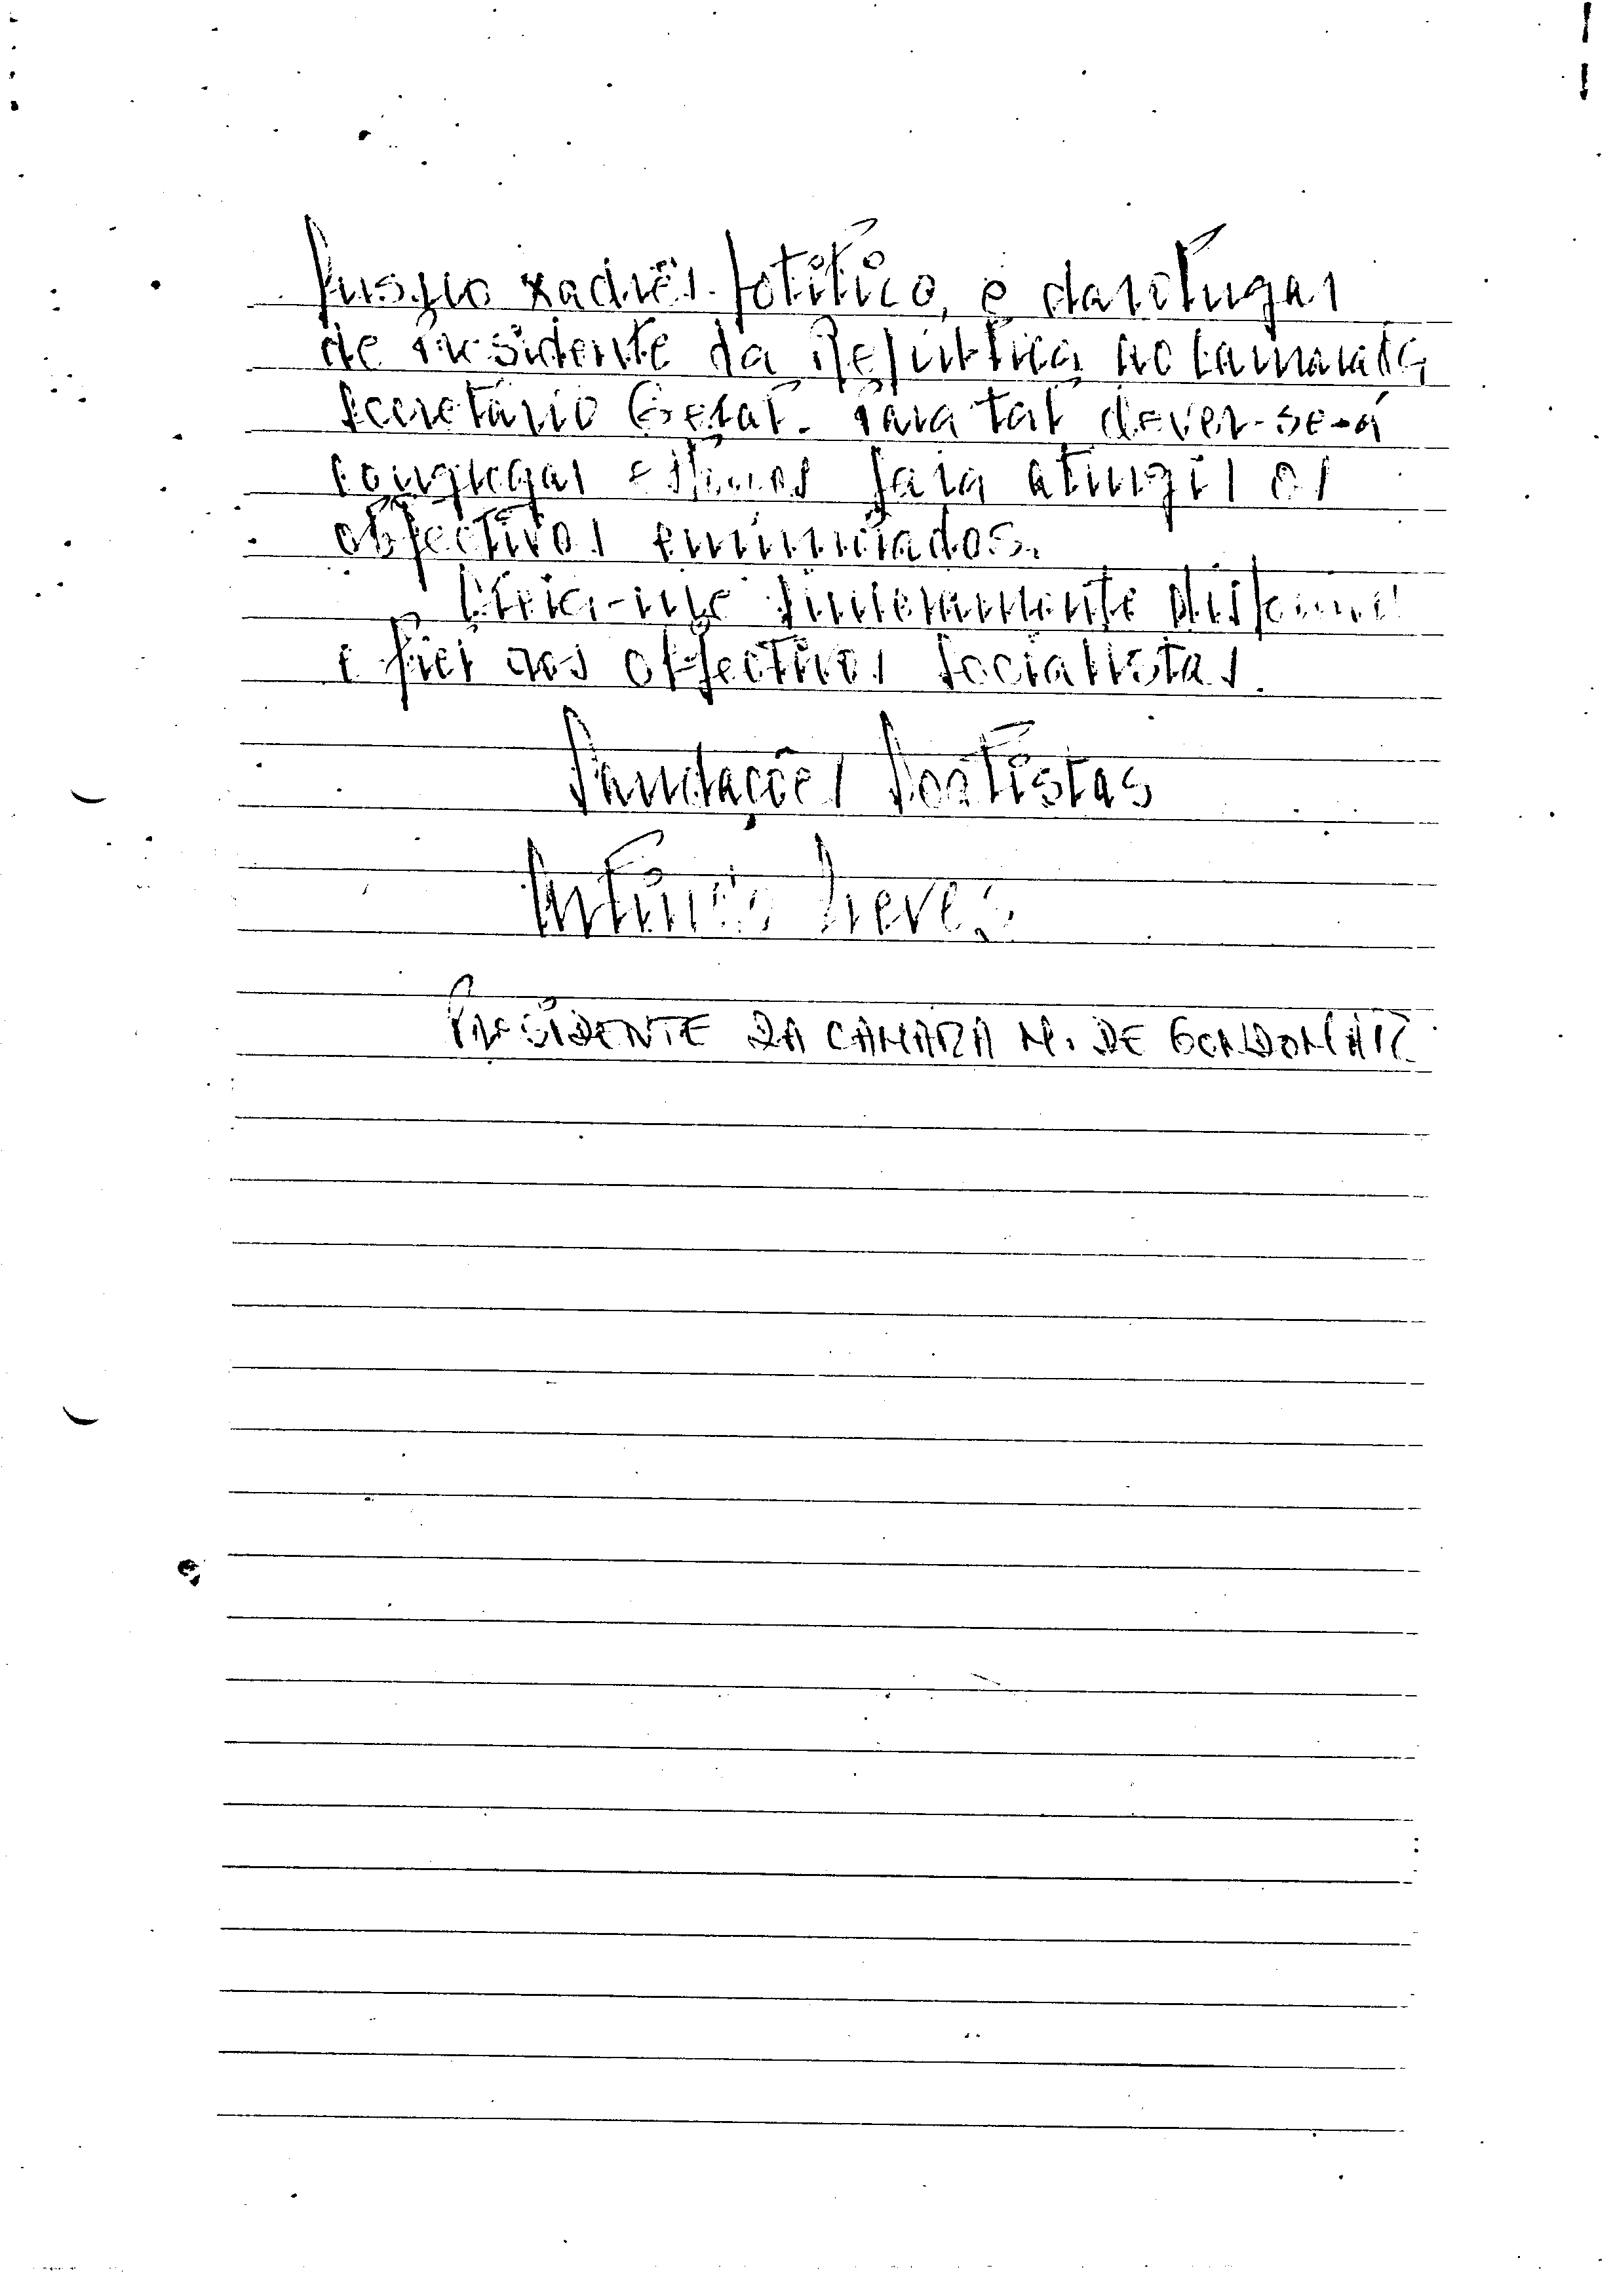 xadrês político, e dar o lugar
de Presidente da República ao camarada
Secretário Geral. Para tal dever-se-á
congregar esforços para atingir os
objectivos enunciados.
Creia-me sinceramente
e fiel aos objectivos socialistas.
Saudações Soalistas
António Neves
PRESIDENTE DA CAMARA M. DE GONDOMAR